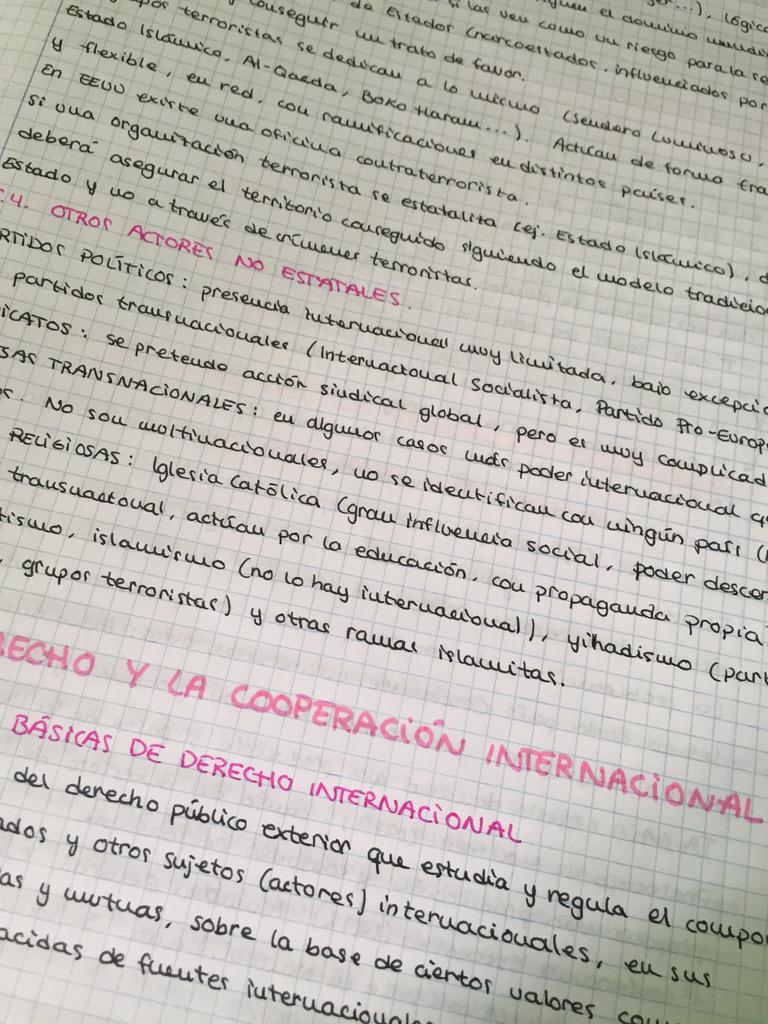 si las ven como un riesgo para la se
conseguir un trato de favor.
de Estados (narcoestados, influenciados por
terroristas se dedican a lo mismo (Sendero Luminoso,
Estado Islámico, Al-Qaeda, Boko Haram...). Actúan de forma tra
y flexible, en red, con ramificaciones en distintos países.
En EEUU existe una oficina contraterrorista.
si una organización terrorista se estataliza (ej. Estado Islámico), d
deberá asegurar el territorio conseguido siguiendo el modelo tradicio
Estado y no a través de crímenes terroristas.
.4. OTROS ACTORES NO ESTATALES.
RTIDOS POLÍTICOS: presencia internacional muy limitada, bajo excepcio
partidos transnacionales (Internacional Socialista, Partido Pro-Europ
ICATOS: se pretendo acción sindical global, pero es muy complicad
SAS TRANSNACIONALES: en algunos casos más poder internacional q
s. No son multinacionales, no se identifican con ningún país (
RELIGIOSAS: Iglesia Católica (gran influencia social, poder descen
transnacional, actúan por la educación, con propaganda propia
tismo, islamismo (no lo hay internacional), yihadismo (part
, grupos terroristas) y otras ramas islamitas.
RECHO Y LA COOPERACIÓN INTERNACIONAL
BÁSICAS DE DERECHO INTERNACIONAL
del derecho público exterior que estudia y regula el compo
ados y otros sujetos (actores) internacionales, en sus
as y mutuas, sobre la base de ciertos valores com
acidas de fuentes internacional